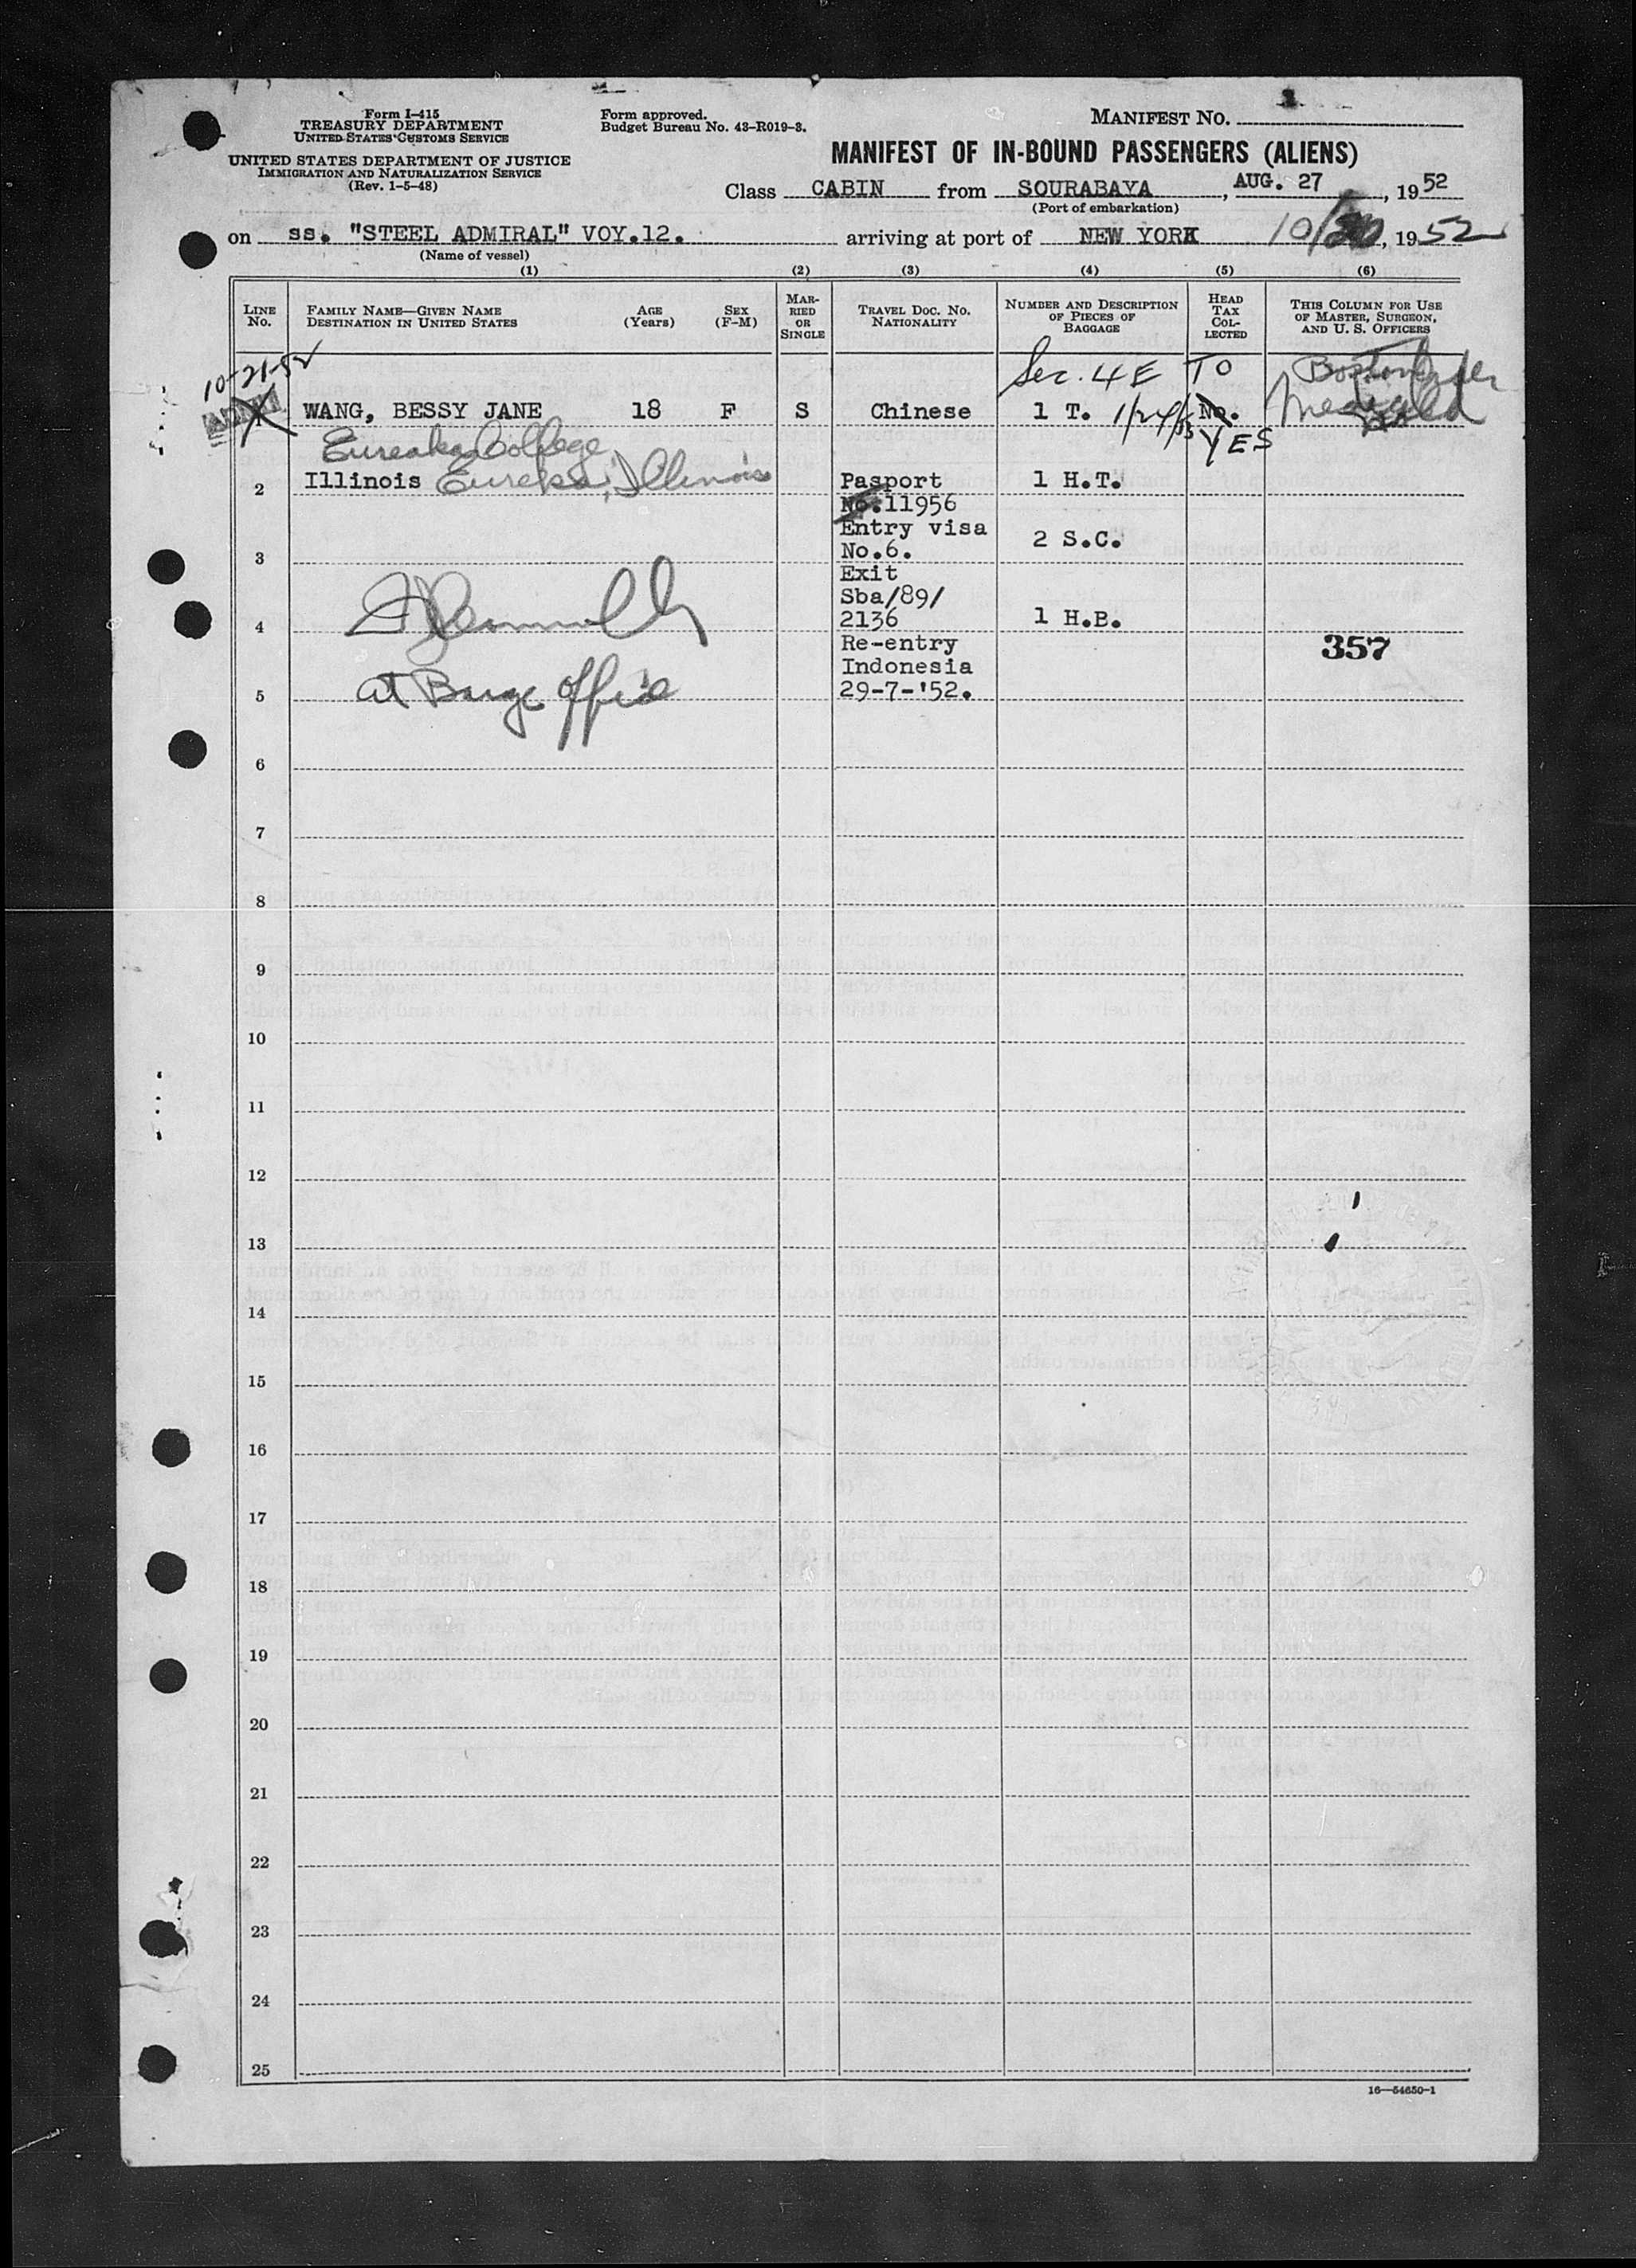 Form I-415
TREASURY DEPARTMENT
UNITED STATES CUSTOMS SERVICE
UNITED STATES DEPARTMENT OF JUSTICE
IMMIGRATION AND NATURALIZATION SERVICE
(Rev. 1-5-48)
Form approved.
Budget Bureau No. 43-R019-3.
MANIFEST NO.
MANIFEST OF IN-BOUND PASSENGERS (ALIENS)
Class CABIN from SOURABAYA, AUG. 27, 1952
(Port of embarkation)
on ss. "STEEL ADMIRAL" VOY.12. arriving at port of NEW YORK 10/, 1952
(Name of vessel)
(1) (2) (3) (4) (5) (6)
LINE No. FAMILY NAME—GIVEN NAME DESTINATION IN UNITED STATES AGE (Years) SEX (F-M) MARRIED OR SINGLE TRAVEL DOC. NO. NATIONALITY NUMBER AND DESCRIPTION OF PIECES OF BAGGAGE HEAD TAX COLLECTED THIS COLUMN FOR USE OF MASTER, SURGEON, AND U. S. OFFICERS
10-21-52 Sec. 4E TO Boston
1 WANG, BESSY JANE 18 F S Chinese 1 T. 1/24/53 No.
YES
Eureaka College
2 Illinois Eureka, Illinois Pasport 1 H.T.
No.11956
Entry visa 2 S.C.
3 No.6.
Exit
Sba/89/
4 2136 1 H.B.
Re-entry 357
Indonesia
5 at Barge Office 29-7-'52.
6
7
8
9
10
11
12
13
14
15
16
17
18
19
20
21
22
23
24
25
16—54650-1